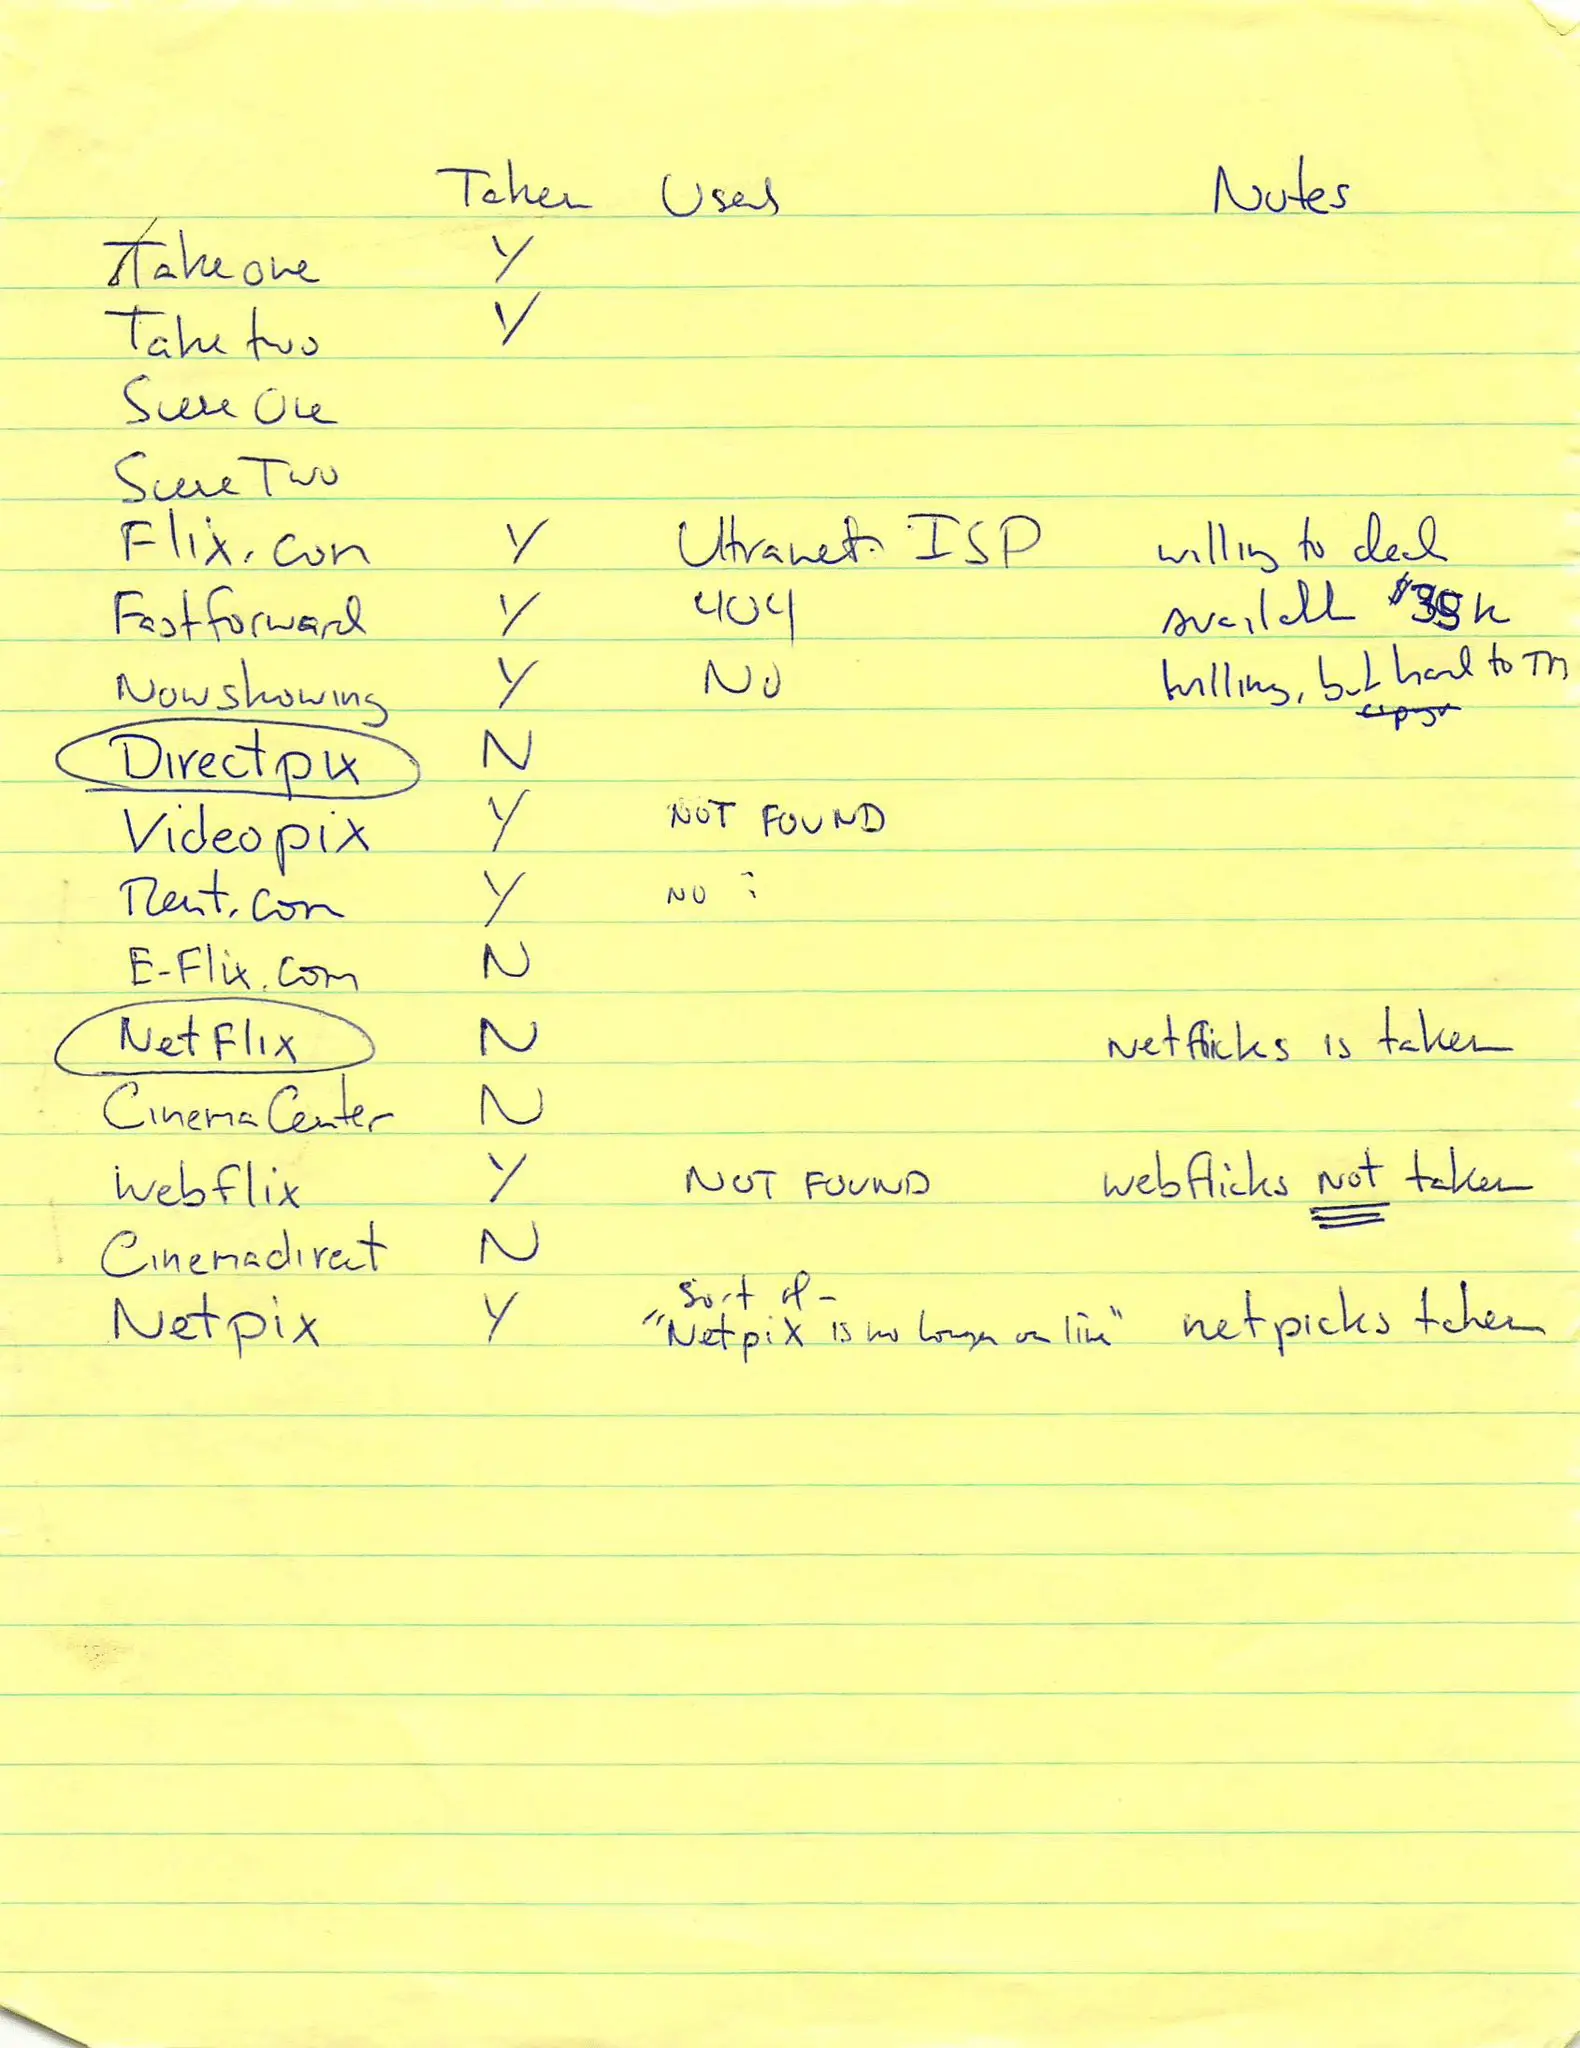 Taken Used Notes
Takeone Y
Taketwo Y
Scene One
Scene Two
Flix.com Y Ultranet. ISP willing to deal
Fastforward Y 404 available $35k
Nowshowing Y No willing, but hard to TM
Directpix N
Videopix Y NOT FOUND
Rent.com Y NO
E-Flix.com N
NetFlix N netflicks is taken
CinemaCenter N
webflix Y NOT FOUND webflicks NOT taken
Cinemadirect N
sort of -
Netpix Y "Netpix is no longer on line" netpicks taken